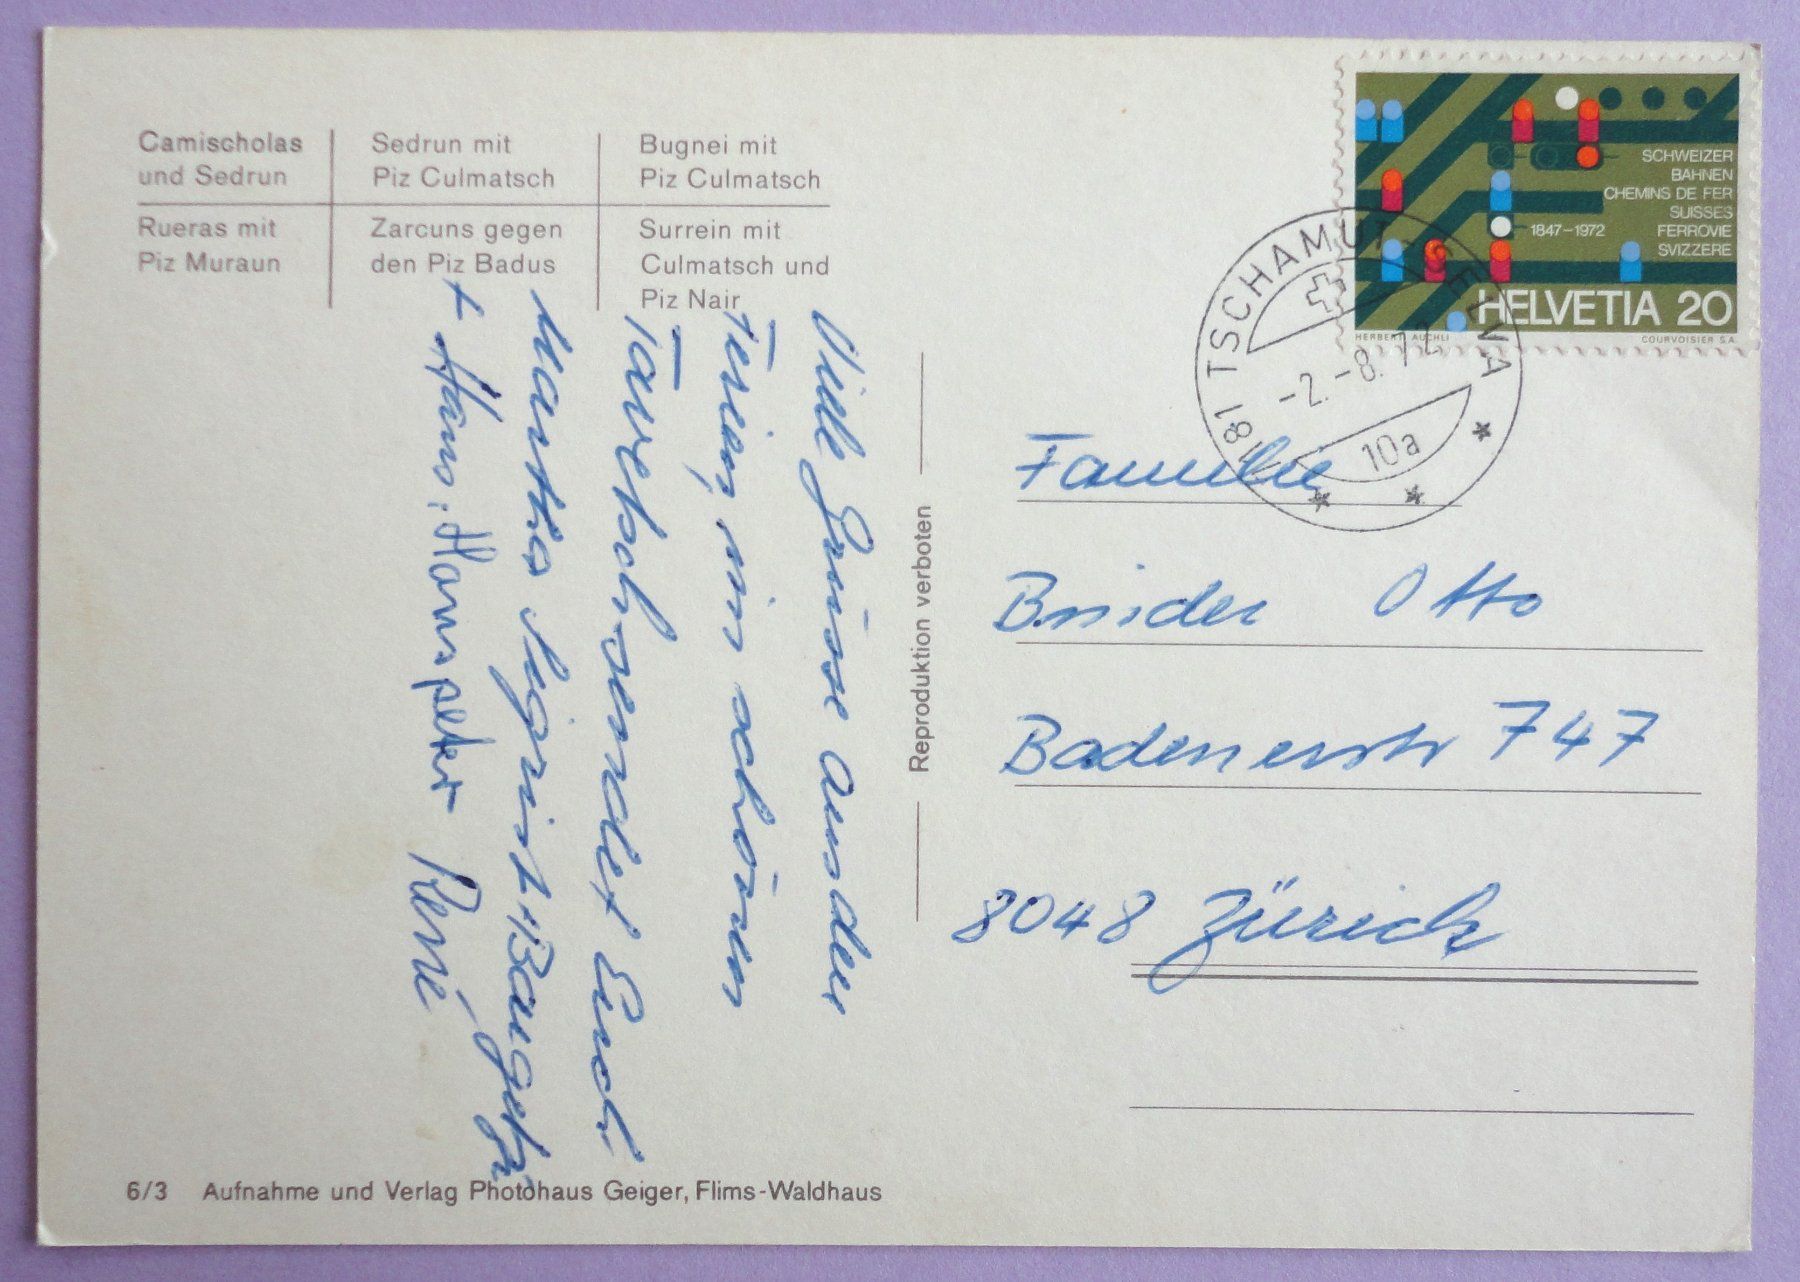 Camischolas
und Sedrun
Sedrun mit
Piz Culmatsch
Bugnei mit
Piz Culmatsch
Rueras mit
Piz Muraun
Zarcuns gegen
den Piz Badus
Surrein mit
Culmatsch und
Piz Nair
SCHWEIZER
BAHNEN
CHEMINS DE FER
SUISSES
1847–1972 FERROVIE
SVIZZERE
HELVETIA 20
HERBERT AUCHLI COURVOISIER S.A.
8181 TSCHAMUT-SELVA
-2.-8.72
10a
Viele Grüsse aus den
Ferien, im schönen
Tavetsch sendet Euch
Martha Sigrist +
+ Hans, Hanspeter René
Reproduktion verboten
Familie
Otto
Badenerstr 747
8048 Zürich
6/3 Aufnahme und Verlag Photohaus Geiger, Flims-Waldhaus